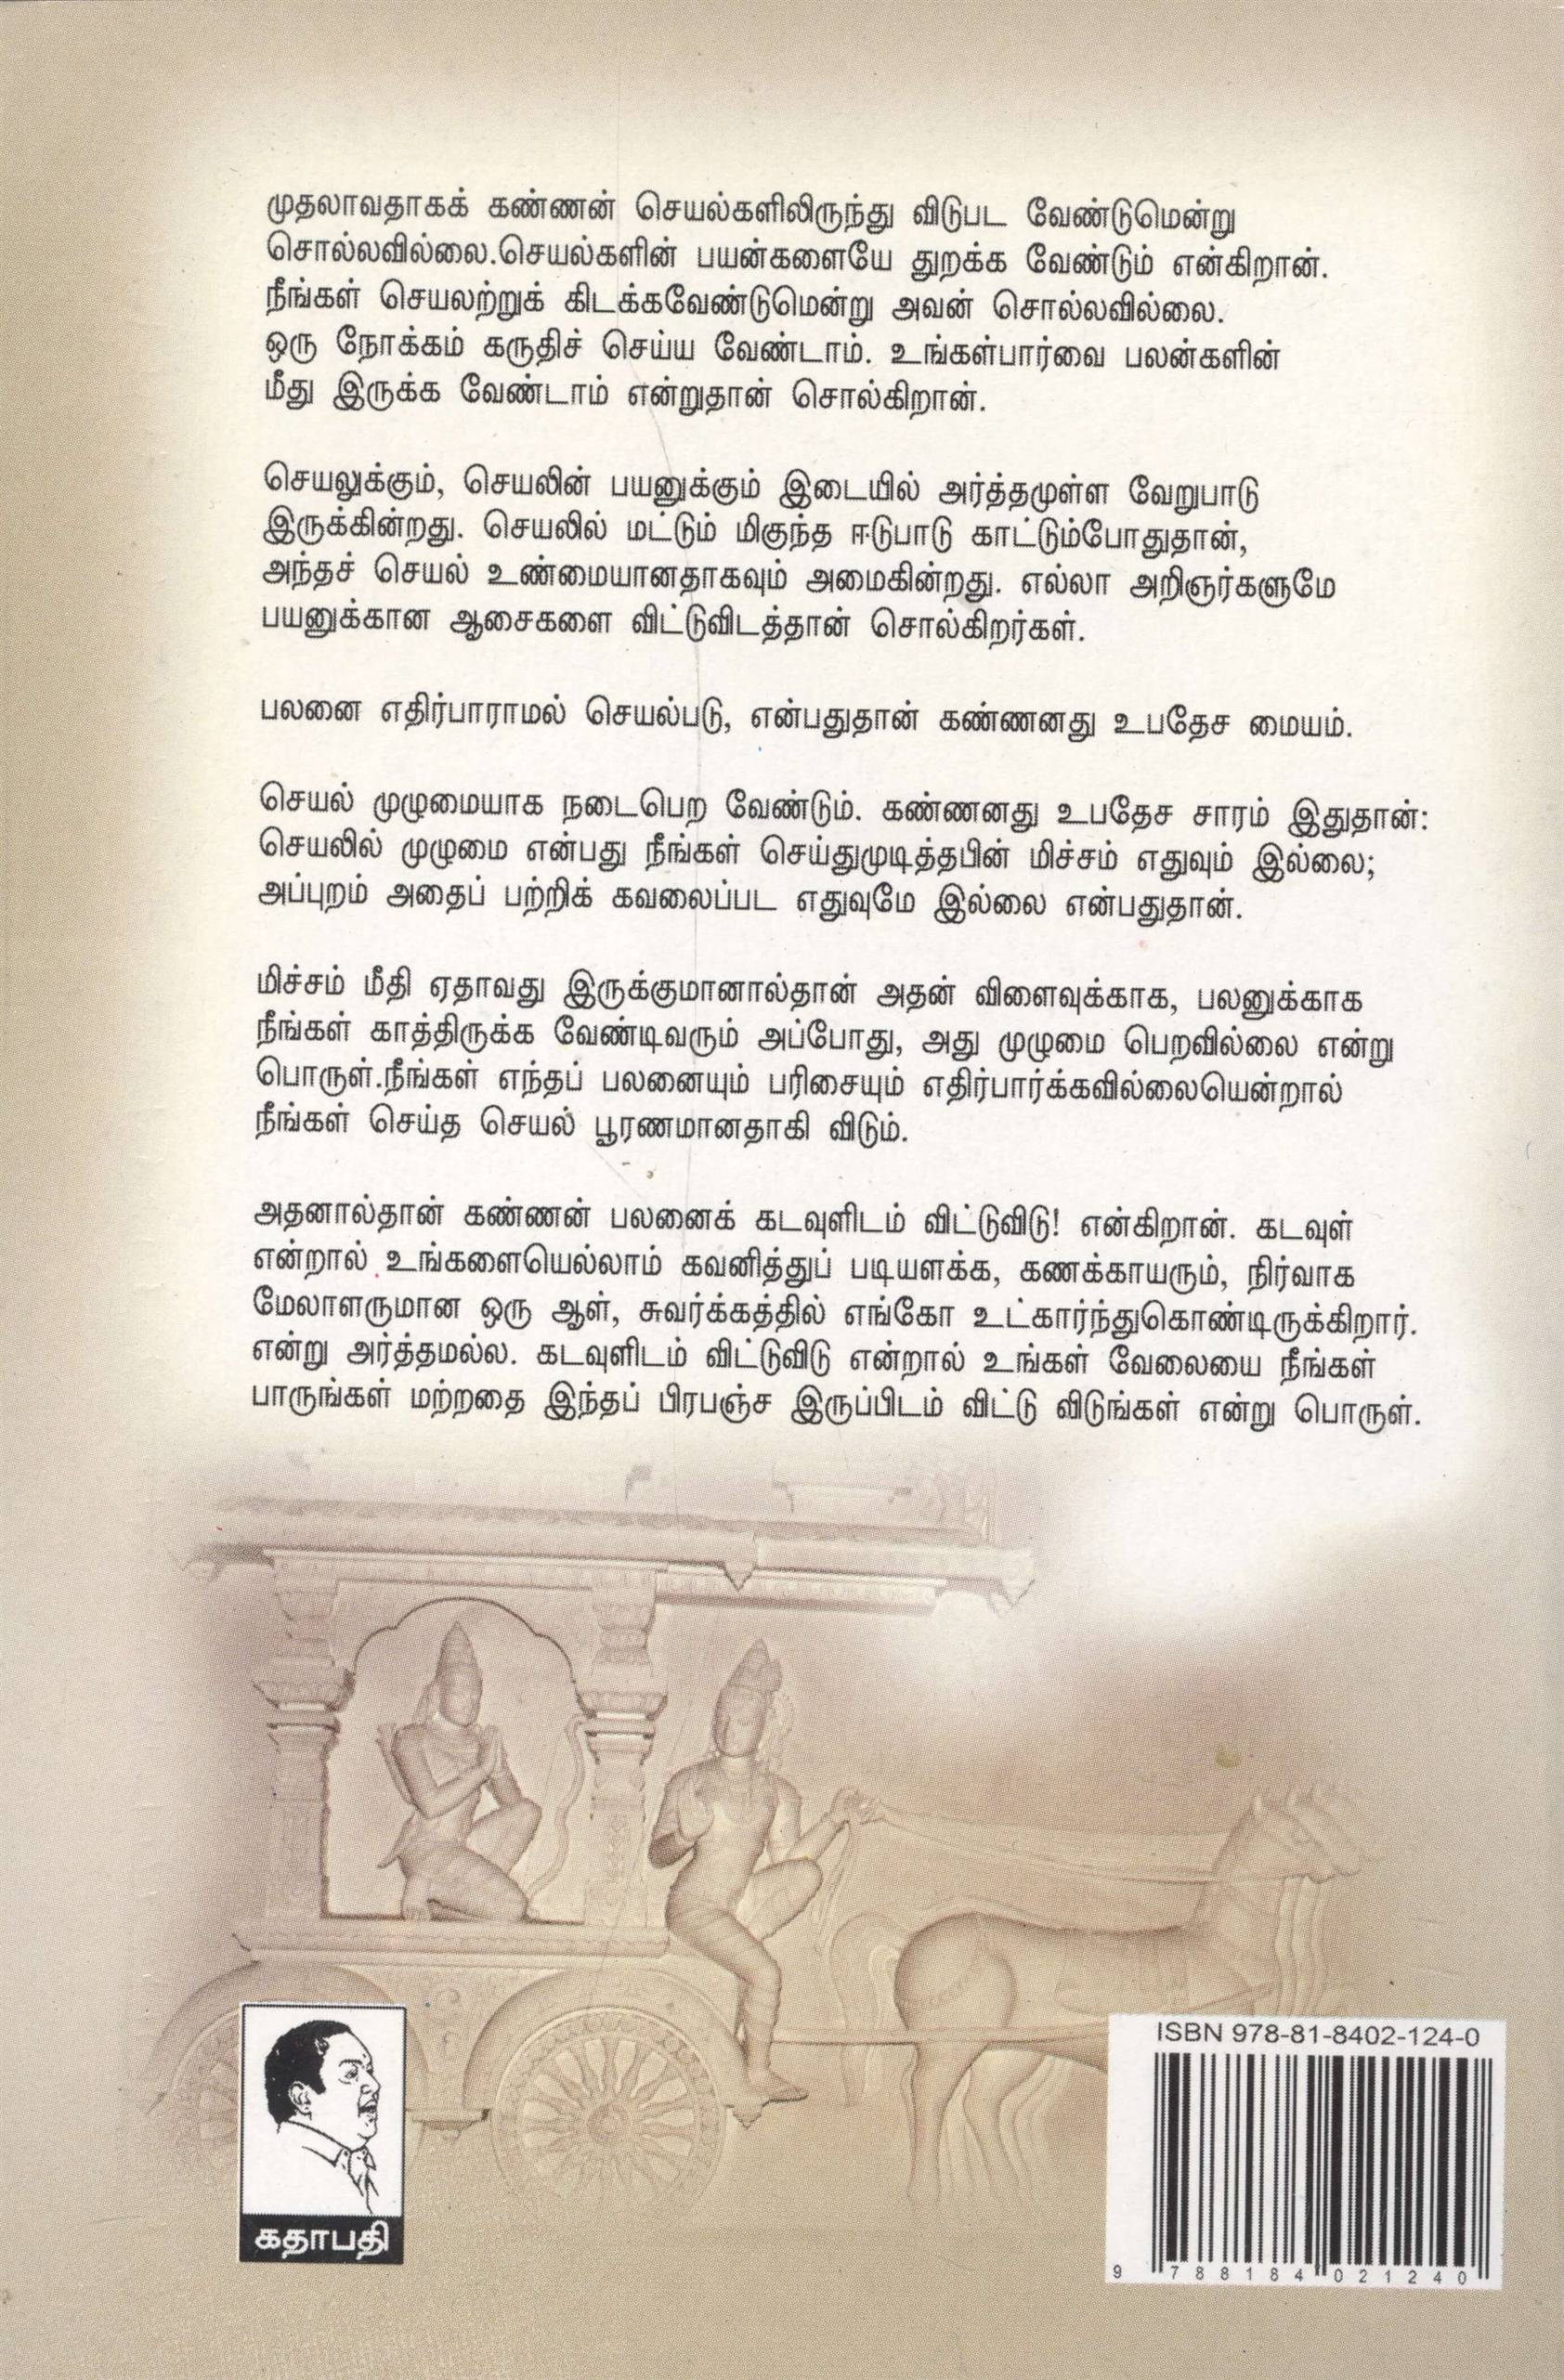 முதலாவதாகக் கண்ணன் செயல்களிலிருந்து விடுபட வேண்டுமென்று
சொல்லவில்லை.செயல்களின் பயன்களையே துறக்க வேண்டும் என்கிறான்.
நீங்கள் செயலற்றுக் கிடக்கவேண்டுமென்று அவன் சொல்லவில்லை.
ஒரு நோக்கம் கருதிச் செய்ய வேண்டாம். உங்கள்பார்வை பலன்களின்
மீது இருக்க வேண்டாம் என்றுதான் சொல்கிறான்.
செயலுக்கும், செயலின் பயனுக்கும் இடையில் அர்த்தமுள்ள வேறுபாடு
இருக்கின்றது. செயலில் மட்டும் மிகுந்த ஈடுபாடு காட்டும்போதுதான்,
அந்தச் செயல் உண்மையானதாகவும் அமைகின்றது. எல்லா அறிஞர்களுமே
பயனுக்கான ஆசைகளை விட்டுவிடத்தான் சொல்கிறர்கள்.
பலனை எதிர்பாராமல் செயல்படு, என்பதுதான் கண்ணனது உபதேச மையம்.
செயல் முழுமையாக நடைபெற வேண்டும். கண்ணனது உபதேச சாரம் இதுதான்:
செயலில் முழுமை என்பது நீங்கள் செய்துமுடித்தபின் மிச்சம் எதுவும் இல்லை;
அப்புறம் அதைப் பற்றிக் கவலைப்பட எதுவுமே இல்லை என்பதுதான்.
மிச்சம் மீதி ஏதாவது இருக்குமானால்தான் அதன் விளைவுக்காக, பலனுக்காக
நீங்கள் காத்திருக்க வேண்டிவரும் அப்போது, அது முழுமை பெறவில்லை என்று
பொருள்.நீங்கள் எந்தப் பலனையும் பரிசையும் எதிர்பார்க்கவில்லையென்றால்
நீங்கள் செய்த செயல் பூரணமானதாகி விடும்.
அதனால்தான் கண்ணன் பலனைக் கடவுளிடம் விட்டுவிடு! என்கிறான். கடவுள்
என்றால் உங்களையெல்லாம் கவனித்துப் படியளக்க, கணக்காயரும், நிர்வாக
மேலாளருமான ஒரு ஆள், சுவர்க்கத்தில் எங்கோ உட்கார்ந்துகொண்டிருக்கிறார்.
என்று அர்த்தமல்ல. கடவுளிடம் விட்டுவிடு என்றால் உங்கள் வேலையை நீங்கள்
பாருங்கள் மற்றதை இந்தப் பிரபஞ்ச இருப்பிடம் விட்டு விடுங்கள் என்று பொருள்.
கதாபதி
ISBN 978-81-8402-124-0
9 788184 021240